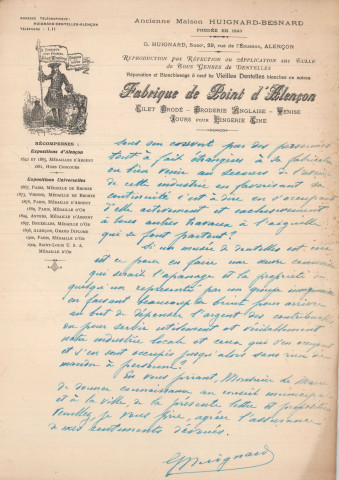 Adresse Télégraphique :
HUIGNARD-DENTELLES-ALENÇON
Téléphone : 1.11
Ancienne Maison HUIGNARD-BESNARD
FONDÉE EN 1840
G. HUIGNARD, Succr, 29, rue de l'Écusson, ALENÇON
Reproduction par Réfection ou Application sur Tulle
de Tous Genres de Dentelles
Réparation et Blanchissage à neuf de Vieilles Dentelles blanches ou noires
Fabrique de Point d'Alençon
Filet Brodé - Broderie Anglaise - Venise
Jours pour Lingerie Fine
RÉCOMPENSES :
Expositions d'Alençon
1842 et 1865, Médailles d'Argent
1881, Hors Concours
Expositions Universelles
1867, Paris, Médaille de Bronze
1873, Vienne, Médaille de Bronze
1878, Paris, Médaille d'Argent
1889, Paris, Médaille d'Or
1894, Anvers, Médaille d'Argent
1897, Bruxelles, Médaille d'Or
1898, Alençon, Grand Diplôme
1900, Paris, Médaille d'Or
1904, Saint-Louis U. S. A.
Médaille d'Or
sous son couvert par des personnes
tout à fait étrangères à sa fabrication
ou bien venir au secours de l'ouvrière
de cette industrie en favorisant sa
continuité c'est à dire en s'occupant
d'elle activement et exclusivement
à tous autres travaux à l'aiguille
qui se font partout ?
Si un musée de dentelles est créé
est ce pour en faire une œuvre
qui serait l'apanage et la propriété de
quelqu'un représenté par un groupe
en faisant beaucoup de bruit pour arriver
au but de dépenser l'argent des contribuables
ou pour servir utilement et véritablement
notre industrie locale et ceux qui s'en occupent
et s'en sont occupés jusqu'alors sans rien de-
mander à personne ?
En vous priant, Monsieur le Maire
de donner connaissance au conseil municipal
et à la ville de la présente lettre et
veuillez, je vous prie, agréer l'assurance
de mes sentiments dévoués.
G Huignard